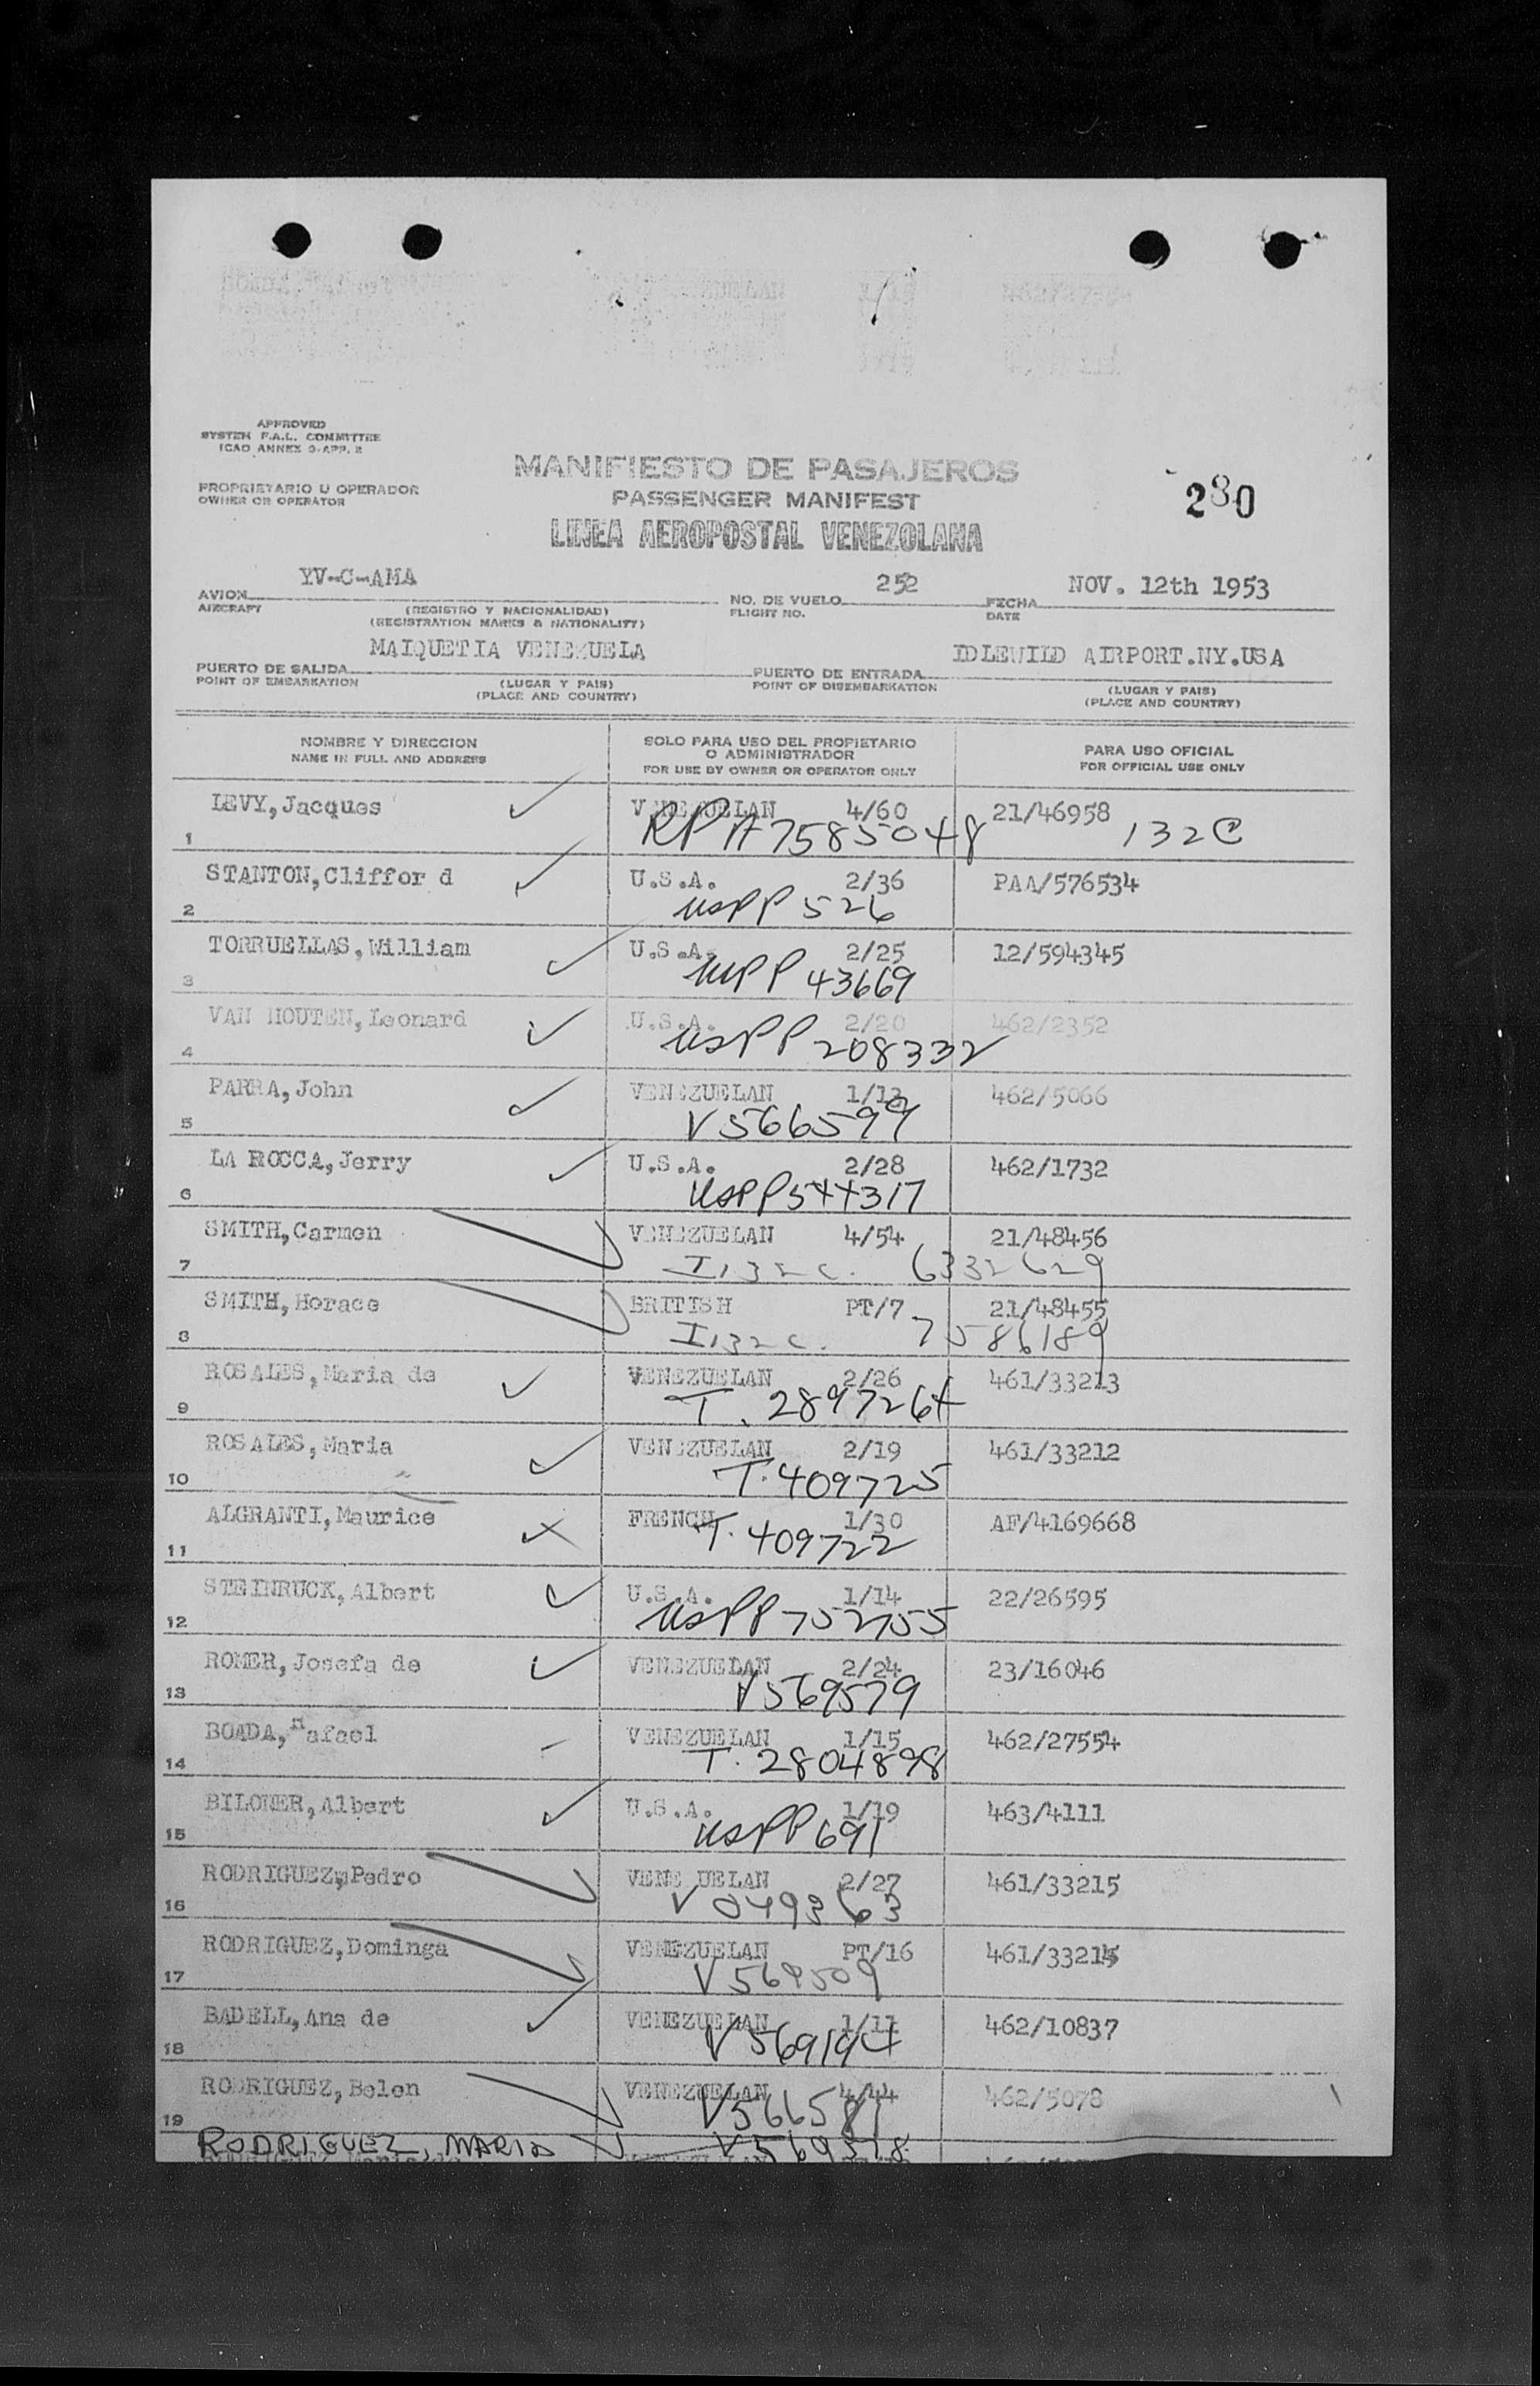 APPROVED
SYSTEM F.A.L. COMMITTEE
ICAO ANNEX 9-APP. 2
MANIFIESTO DE PASAJEROS
PROPRIETARIO U OPERADOR
OWNER OR OPERATOR
PASSENGER MANIFEST
280
LINEA AEROPOSTAL VENEZOLANA
YV-C-AMA 252 NOV. 12th 1953
AVION NO. DE VUELO FECHA
AIRCRAFT (REGISTRO Y NACIONALIDAD) FLIGHT NO. DATE
(REGISTRATION MARKS & NATIONALITY)
MAIQUETIA VENEZUELA IDLEWILD AIRPORT.NY.USA
PUERTO DE SALIDA PUERTO DE ENTRADA
POINT OF EMBARKATION (LUGAR Y PAIS) POINT OF DISEMBARKATION (LUGAR Y PAIS)
(PLACE AND COUNTRY) (PLACE AND COUNTRY)
NOMBRE Y DIRECCION SOLO PARA USO DEL PROPIETARIO PARA USO OFICIAL
O ADMINISTRADOR
NAME IN FULL AND ADDRESS FOR USE BY OWNER OR OPERATOR ONLY FOR OFFICIAL USE ONLY
LEVY,Jacques VENEZUELAN 4/60 21/46958
1 RP A7585048 132C
STANTON,Cliffor d U.S.A. 2/36 PAA/576534
2 USPP 526
TORRUELLAS,William U.S.A. 2/25 12/594345
3 USPP 43669
VAN HOUTEN,Leonard U.S.A. 2/20 462/2352
4 USPP 208332
PARRA,John VENEZUELAN 1/13 462/5066
5 V566599
LA ROCCA,Jerry U.S.A. 2/28 462/1732
6 USPP544317
SMITH,Carmen VENEZUELAN 4/54 21/48456
7 I132c. 6332629
SMITH,Horace BRITISH PT/7 21/48455
8 I132c. 7586189
ROSALES,Maria de VENEZUELAN 2/26 461/33213
9 T. 2897264
ROSALES,Maria VENEZUELAN 2/19 461/33212
10 T. 409725
ALGRANTI,Maurice FRENCH 1/30 AF/4169668
11 T. 409722
STEINRUCK,Albert U.S.A. 1/14 22/26595
12 USPP 752755
ROMER,Josefa de VENEZUELAN 2/24 23/16046
13 V569579
BOADA,Rafael VENEZUELAN 1/15 462/27554
14 T. 2804898
BILONER,Albert U.S.A. 1/19 463/4111
15 USPP 691
RODRIGUEZ,Pedro VENE UELAN 2/27 461/33215
16 V 049363
RODRIGUEZ,Dominga VENEZUELAN PT/16 461/33215
17 V569509
BADELL,Ana de VENEZUELAN 1/11 462/10837
18 V569194
RODRIGUEZ,Belen VENEZUELAN 4/44 462/5078
19 V566581
RODRIGUEZ, MARIA V569578